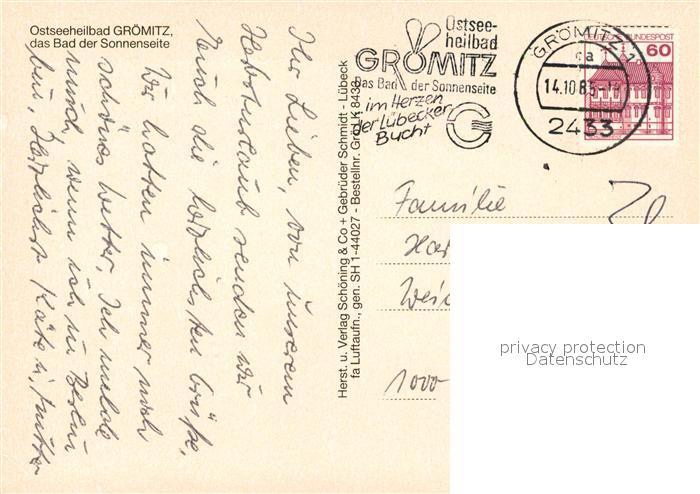 Ostseeheilbad GRÖMITZ,
das Bad der Sonnenseite
Ihr Lieben, von unserem
Herbsturlaub senden wir
Euch die herzlichsten Grüße.
Wir hatten immer noch
schönes Wetter. Ich melde
mich, wenn ich in Berlin
bin. Herzlichst Käte u.
Herst. u. Verlag Schöning & Co + Gebrüder Schmidt - Lübeck
fa Luftaufn., gen. SH 1-44027 - Bestellnr. Grö LK 8438
Ostsee-
heilbad
GRÖMITZ
Das Bad der Sonnenseite
im Herzen
der Lübecker
Bucht
GRÖMITZ 1
ca
14.10.85
2433
DEUTSCHE BUNDESPOST
60
Familie
1000
privacy protection
Datenschutz